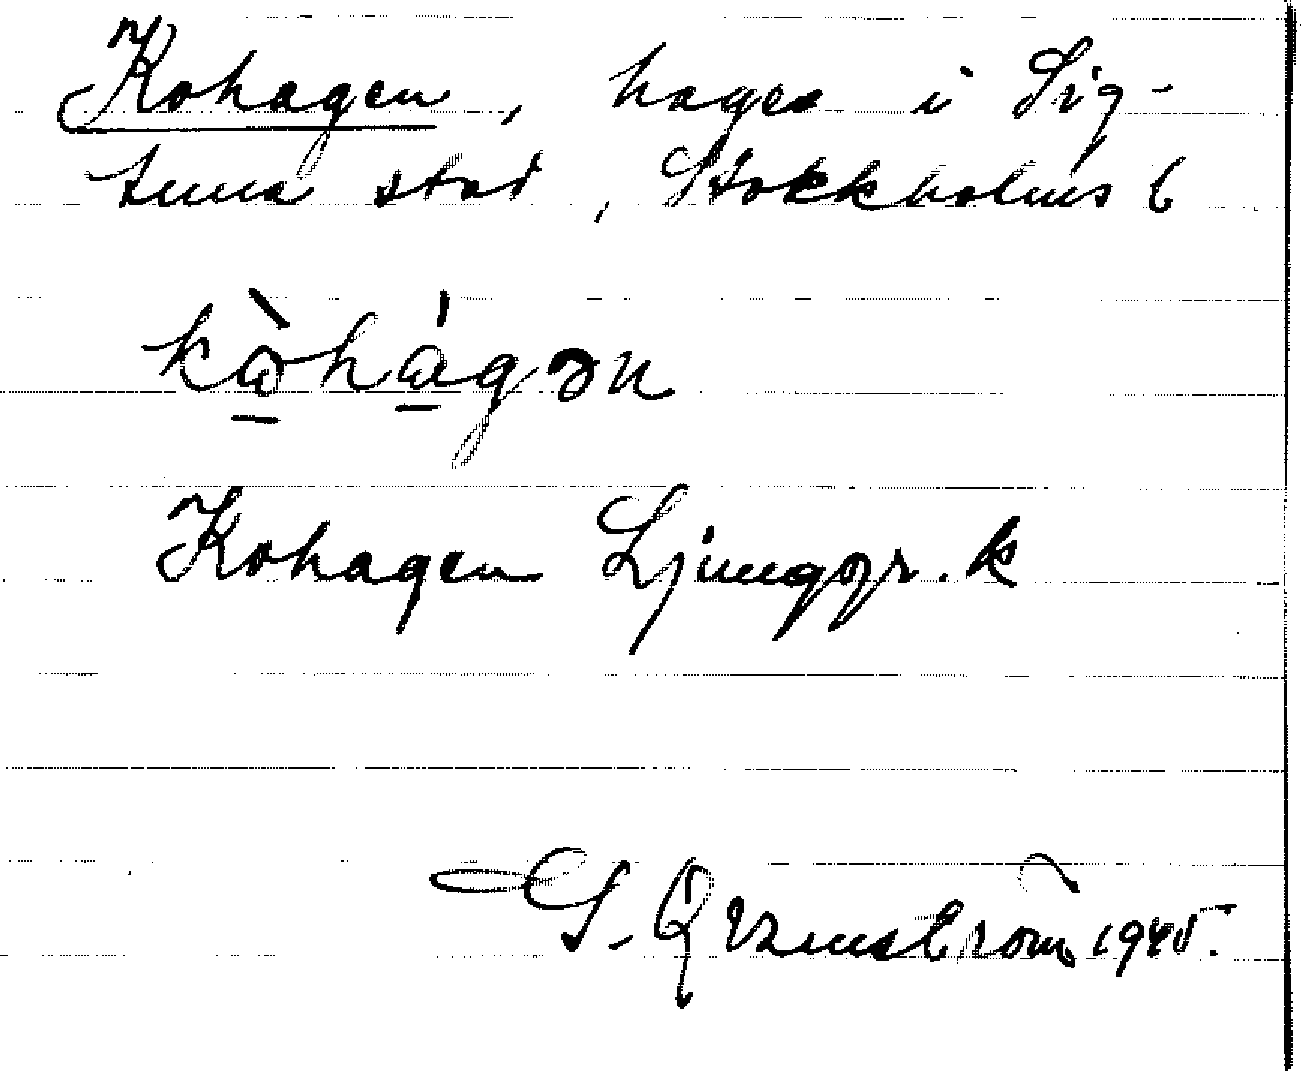 Kohagen, hage i Sig-
tuna stad, Stockholms l
kòhágən
Kohagen Ljunggr. k
G. Qvarnström 1945.